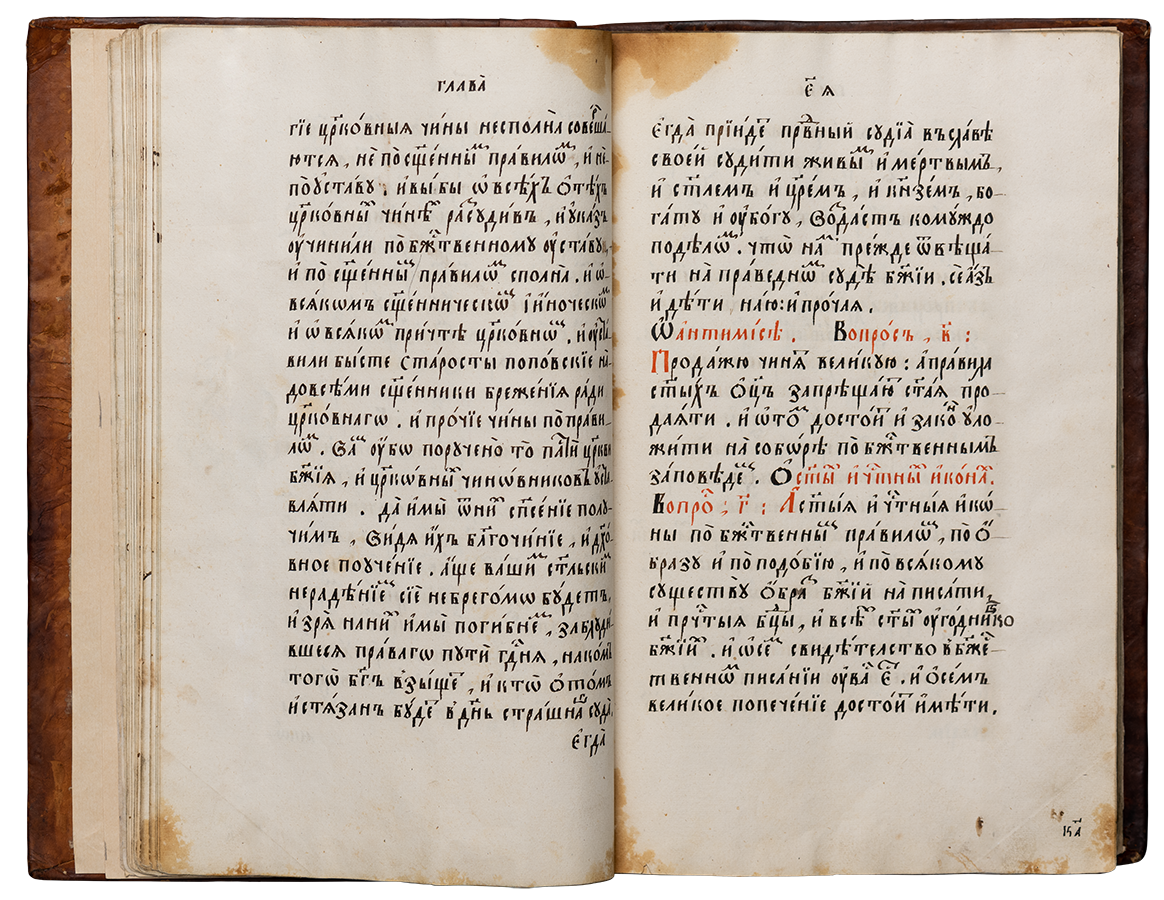 глава̀
гїе цр҃ко́вныя чи́ны несполна̀ соверша́
ются, не по сщ҃е́нным пра́вилом, и не
по уста́ву. и вы́ бы ѡ всѣ́хъ о тѣ́хъ
цр҃ко́вных чинѣ́х разсуди́въ, и ука́зъ
оучини́ли по бж҃твенному оуста́ву,
и по сщ҃е́нным пра́вилом сполна̀. и ѡ
вся́комъ сщ҃е́нническом і и́ноческом
и ѡ вся́ком при́чтѣ цр҃ко́вном. и оуста
вили бы́сте старосты попо́вскїе на́
до всѣ́ми сщ҃е́нники бреже́нїя ра́ди
цр҃ко́внагѡ. и про́чїе чи́ны по пра́ви
лом. вам оу́бо поруче́но то пасти цр҃кви
бж҃їя, и цр҃ко́вных чино́вниковъ уста
вля́ти. да и мы̀ ѿ ни́х сп҃се́нїе полу
чим, ви́дя и́хъ бл҃гочи́нїе, и дх҃о́
вное поуче́нїе. а́ще ва́шим ст҃льским
нераде́нїем сїѐ небрего́мо бу́детъ,
и зря̀ на ни́х и мы̀ поги́бнем, заблуди́
вшеся пра́вагѡ путѝ гд҃ня, на ко́мъ
тогѡ̀ бг҃ъ взы́щет, и ктѡ̀ о то́мъ
истя́занъ бу́дет в дн҃ь стра́шнаго суда̀.
егда̀
є҃ я
Егда̀ прїи́дет пра́ведный судїа̀ въ сла́вѣ
свое́й суди́ти живы́м и ме́ртвымъ,
и ст҃лемъ и цр҃е́мъ, и кнзе́мъ, бо
га́ту и оубо́гу, возда́стъ кому́ждо
по дѣло́м. что̀ на́м пре́жде ѿвѣща́
ти на пра́веднѡм судѣ̀ бж҃їи. се а́зъ
и дѣ́ти на́ю: и про́чая.
Ѡ антими́сѣ. Вопро́съ, в҃:
Продажю чиня́т вели́кую: а пра́вила
ст҃ы́хъ ѡц҃ъ запреща́ют ст҃а́я про
дая́ти. и ѡ то́м досто́ит и зако́н уло
жи́ти на собо́рѣ по бж҃твеннымъ
за́повѣдем. О ст҃ы́х и чт҃ны́х ико́нах.
Вопро́с, г҃: А ст҃ы́я и чт҃ныя ико́
ны по бж҃твенным пра́вилом, по о́
бразу и по подо́бїю, и по вся́кому
существу̀ о́браз бж҃їй написа́ти,
и прчт҃ыя бц҃ы, и всѣ́х ст҃ы́х оуго́дникѡвъ
бж҃їих. и ѡ се́м свидѣ́тельство в бж҃е́
твенном писа́нїи оу ва́с е҃. и о се́мъ
вели́кое попече́нїе досто́ит имѣ́ти.
к҃а